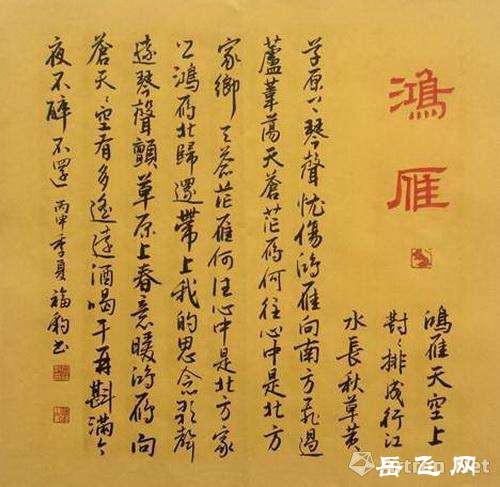 鴻雁
鴻雁天空上
對〻排成行江
水長秋草黄
草原上琴聲忧傷鴻雁向南方飛過
蘆葦蕩天蒼茫雁何往心中是北方
家鄉天蒼茫雁何往心中是北方家
乡鴻雁北歸還帶上我的思念歌聲
遠琴聲顫草原上春意暖鴻雁向
蒼天〻空有多遙遠酒喝干再斟滿今
夜不醉不還 丙申季夏福鈞书
岳飞网